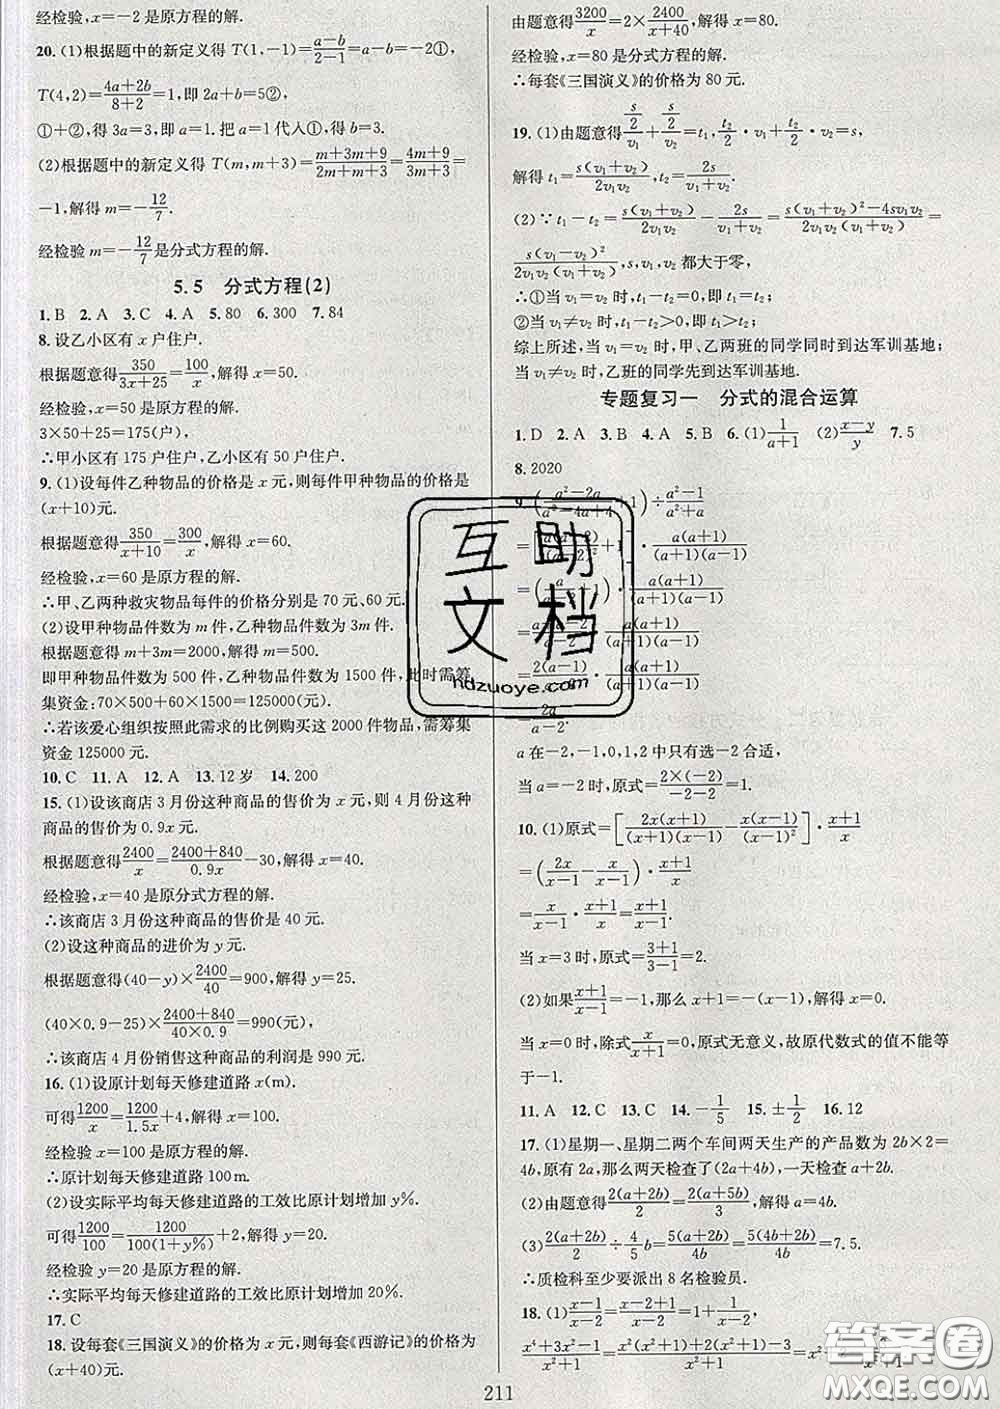 经检验,x=-2是原方程的解.
20. (1)根据题中的新定义得 T(1,-1)=\frac{a-b}{2-1}=a-b=-2①,
T(4,2)=\frac{4a+2b}{8+2}=1,即 2a+b=5②,
①+②,得 3a=3,即 a=1. 把 a=1 代入①,得 b=3.
(2)根据题中的新定义得 T(m,m+3)=\frac{m+3m+9}{2m+m+3}=\frac{4m+9}{3m+3}=
-1,解得 m=-\frac{12}{7}.
经检验 m=-\frac{12}{7}是分式方程的解.
5.5 分式方程(2)
1. B 2. A 3. C 4. A 5. 80 6. 300 7. 84
8. 设乙小区有 x 户住户.
根据题意得\frac{350}{3x+25}=\frac{100}{x},解得 x=50.
经检验,x=50 是原方程的解.
3×50+25=175(户),
∴甲小区有 175 户住户,乙小区有 50 户住户.
9. (1)设每件乙种物品的价格是 x 元,则每件甲种物品的价格是
(x+10)元.
根据题意得\frac{350}{x+10}=\frac{300}{x},解得 x=60.
经检验,x=60 是原方程的解.
∴甲、乙两种救灾物品每件的价格分别是 70 元、60 元.
(2)设甲种物品件数为 m 件,乙种物品件数为 3m 件.
根据题意得 m+3m=2000,解得 m=500.
即甲种物品件数为 500 件,乙种物品件数为 1500 件,此时需筹
集资金:70×500+60×1500=125000(元).
∴若该爱心组织按照此需求的比例购买这 2000 件物品,需筹集
资金 125000 元.
10. C 11. A 12. A 13. 12 岁 14. 200
15. (1)设该商店 3 月份这种商品的售价为 x 元,则 4 月份这种
商品的售价为 0.9x 元.
根据题意得\frac{2400}{x}=\frac{2400+840}{0.9x}-30,解得 x=40.
经检验,x=40 是原分式方程的解.
∴该商店 3 月份这种商品的售价是 40 元.
(2)设这种商品的进价为 y 元.
根据题意得(40-y)×\frac{2400}{40}=900,解得 y=25.
(40×0.9-25)×\frac{2400+840}{40×0.9}=990(元),
∴该商店 4 月份销售这种商品的利润是 990 元.
16. (1)设原计划每天修建道路 x(m).
可得\frac{1200}{x}=\frac{1200}{1.5x}+4,解得 x=100.
经检验 x=100 是原方程的解.
∴原计划每天修建道路 100 m.
(2)设实际平均每天修建道路的工效比原计划增加 y%.
可得\frac{1200}{100}=\frac{1200}{100(1+y%)}+2,解得 y=20.
经检验 y=20 是原方程的解.
∴实际平均每天修建道路的工效比原计划增加 20%.
17. C
18. 设每套《三国演义》的价格为 x 元,则每套《西游记》的价格为
(x+40)元.
由题意得\frac{3200}{x}=2×\frac{2400}{x+40},解得 x=80.
经检验,x=80 是分式方程的解.
∴每套《三国演义》的价格为 80 元.
19. (1)由题意得\frac{\frac{s}{2}}{v₁}+\frac{\frac{s}{2}}{v₂}=t₁,\frac{t₂}{2}·v₁+\frac{t₂}{2}·v₂=s,
解得 t₁=\frac{s(v₁+v₂)}{2v₁v₂},t₂=\frac{2s}{v₁+v₂}.
(2)∵t₁-t₂=\frac{s(v₁+v₂)}{2v₁v₂}-\frac{2s}{v₁+v₂}=\frac{s(v₁+v₂)²-4sv₁v₂}{2v₁v₂(v₁+v₂)}=
\frac{s(v₁-v₂)²}{2v₁v₂(v₁+v₂)},s,v₁,v₂ 都大于零,
∴①当 v₁=v₂ 时,t₁-t₂=0,即 t₁=t₂;
②当 v₁≠v₂ 时,t₁-t₂>0,即 t₁>t₂.
综上所述,当 v₁=v₂ 时,甲、乙两班的同学同时到达军训基地;
当 v₁≠v₂ 时,乙班的同学先到达军训基地.
专题复习一 分式的混合运算
1. D 2. A 3. B 4. A 5. B 6. (1)\frac{1}{a+1} (2)\frac{x-y}{y} 7. 5
8. 2020
9. (\frac{a²-2a}{a²-4a+4}+1)÷\frac{a²-1}{a²+a}
·\frac{a(a+1)}{(a+1)(a-1)}
·\frac{a(a+1)}{(a+1)(a-1)}
·\frac{a(a+1)}{(a+1)(a-1)}
=\frac{2(a-1)}{a-2}·\frac{a(a+1)}{(a+1)(a-1)}
=\frac{2a}{a-2}.
a 在-2,-1,0,1,2 中只有选-2 合适,
当 a=-2 时,原式=\frac{2×(-2)}{-2-2}=1.
10. (1)原式=[\frac{2x(x+1)}{(x+1)(x-1)}-\frac{x(x-1)}{(x-1)²}]·\frac{x+1}{x}
=(\frac{2x}{x-1}-\frac{x}{x-1})·\frac{x+1}{x}
=\frac{x}{x-1}·\frac{x+1}{x}=\frac{x+1}{x-1}.
当 x=3 时,原式=\frac{3+1}{3-1}=2.
(2)如果\frac{x+1}{x-1}=-1,那么 x+1=-(x-1),解得 x=0.
当 x=0 时,除式\frac{x}{x+1}=0,原式无意义,故原代数式的值不能等
于-1.
11. A 12. C 13. C 14. -\frac{1}{5} 15. ±\frac{1}{2} 16. 12
17. (1)星期一、星期二两个车间两天生产的产品数为 2b×2=
4b,原有 2a,那么两天检查了(2a+4b),一天检查 a+2b.
(2)由题意得\frac{2(a+2b)}{2}=\frac{2(a+5b)}{3},解得 a=4b.
(3)\frac{2(a+2b)}{2}÷\frac{4}{5}b=\frac{5(a+2b)}{4b}=\frac{5(4b+2b)}{4b}=7.5.
∴质检科至少要派出 8 名检验员.
18. (1)\frac{x-1}{x-2}=\frac{x-2+1}{x-2}=1+\frac{1}{x-2},
\frac{x⁴+3x²-1}{x²+1}=\frac{x²(x²+1)+2(x²+1)-3}{x²+1}=x²+2-\frac{3}{x²+1}
211
互助
文档
hdzuoye.com
答案圈
MXQE.COM